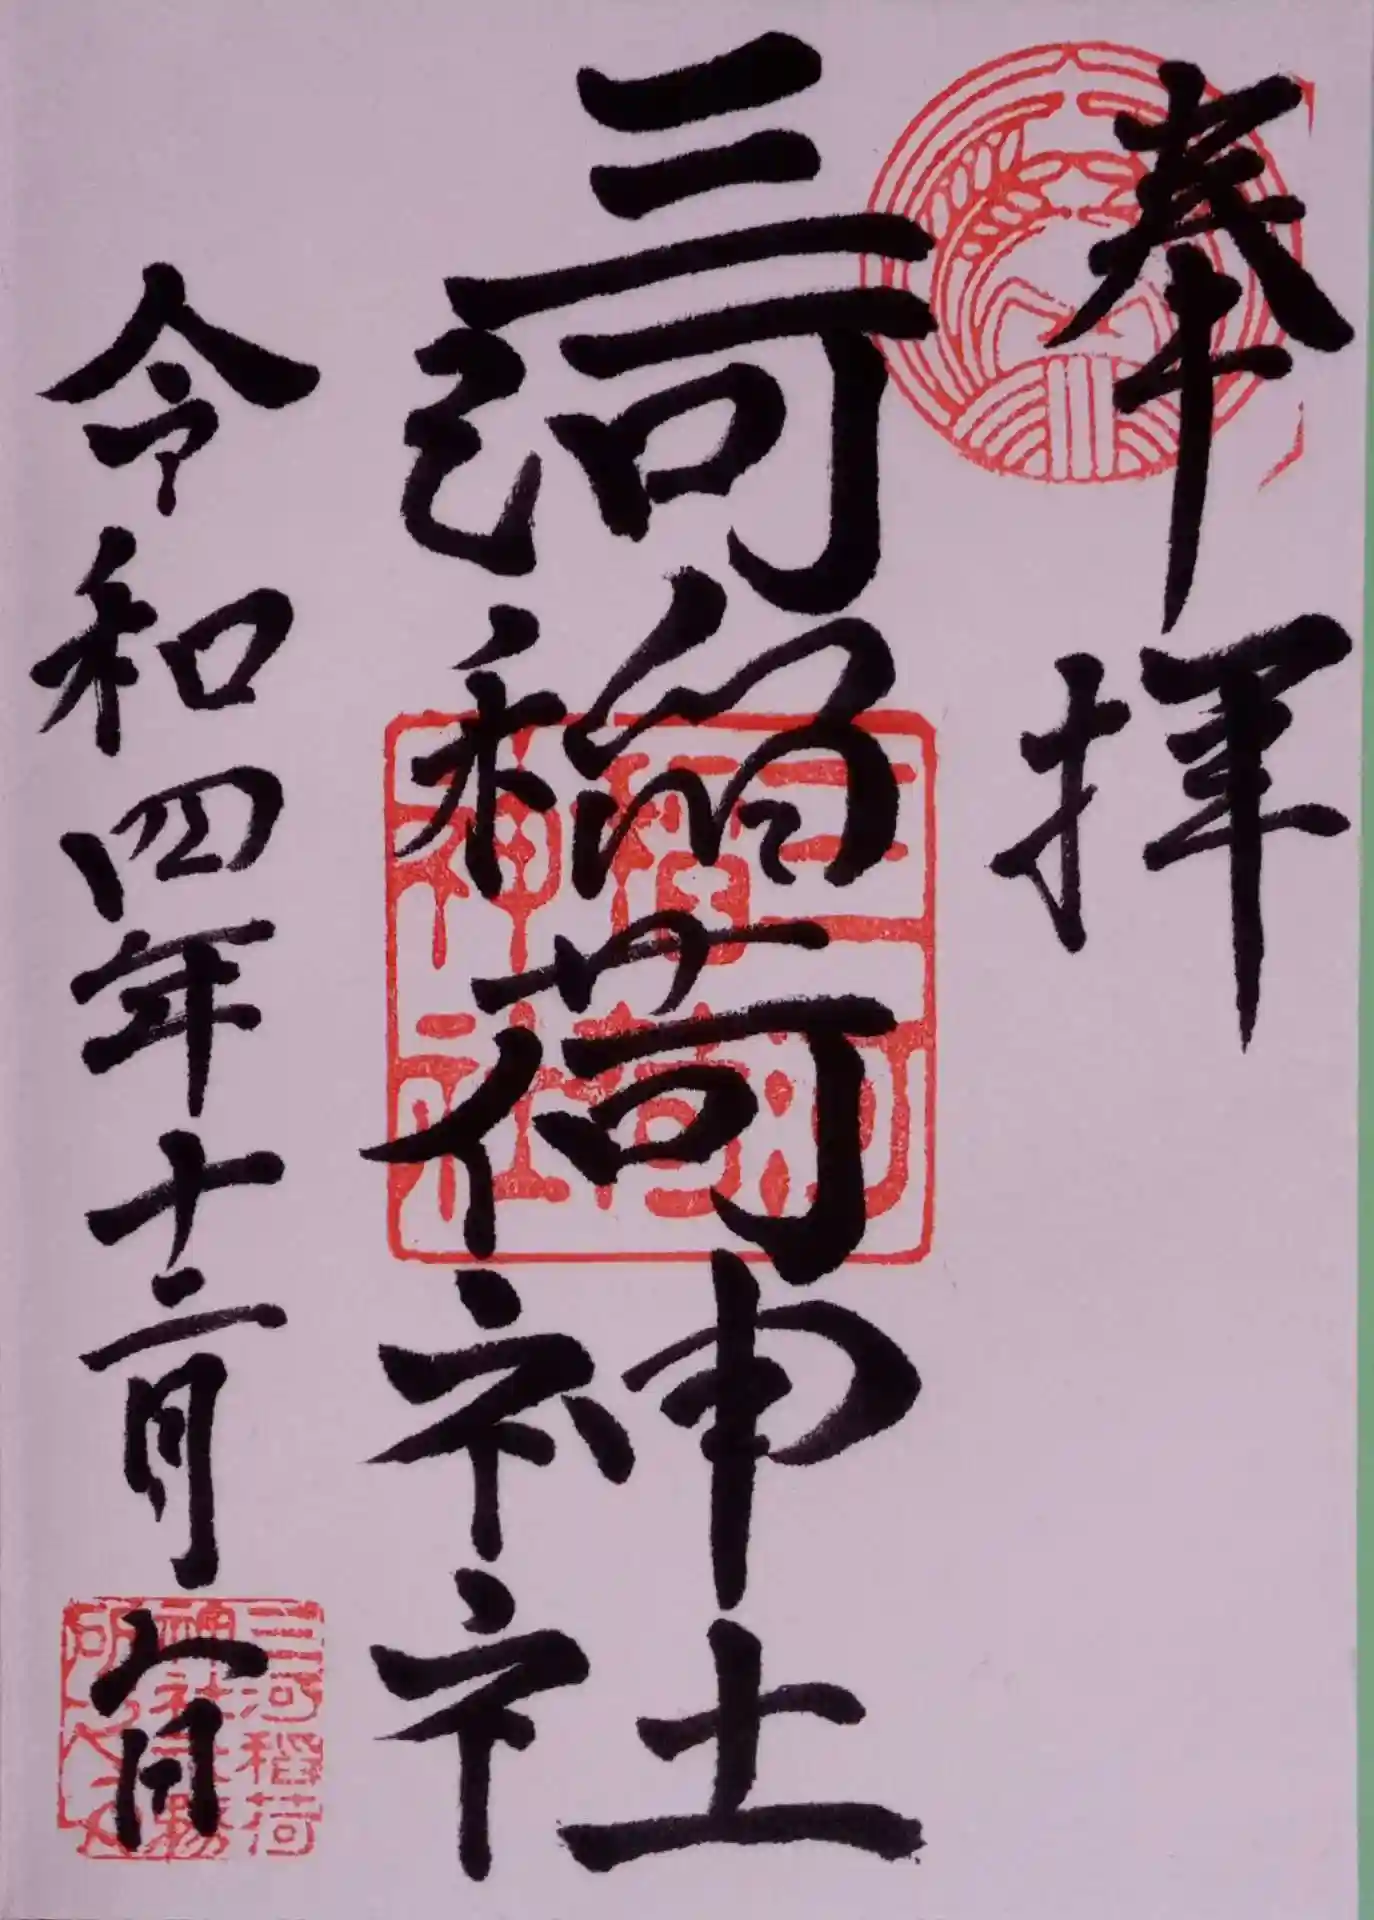 奉拝
三河稲荷神社
令和四年十二月 日
三河
稲荷
神社
三河稲荷
神社社務
所之印